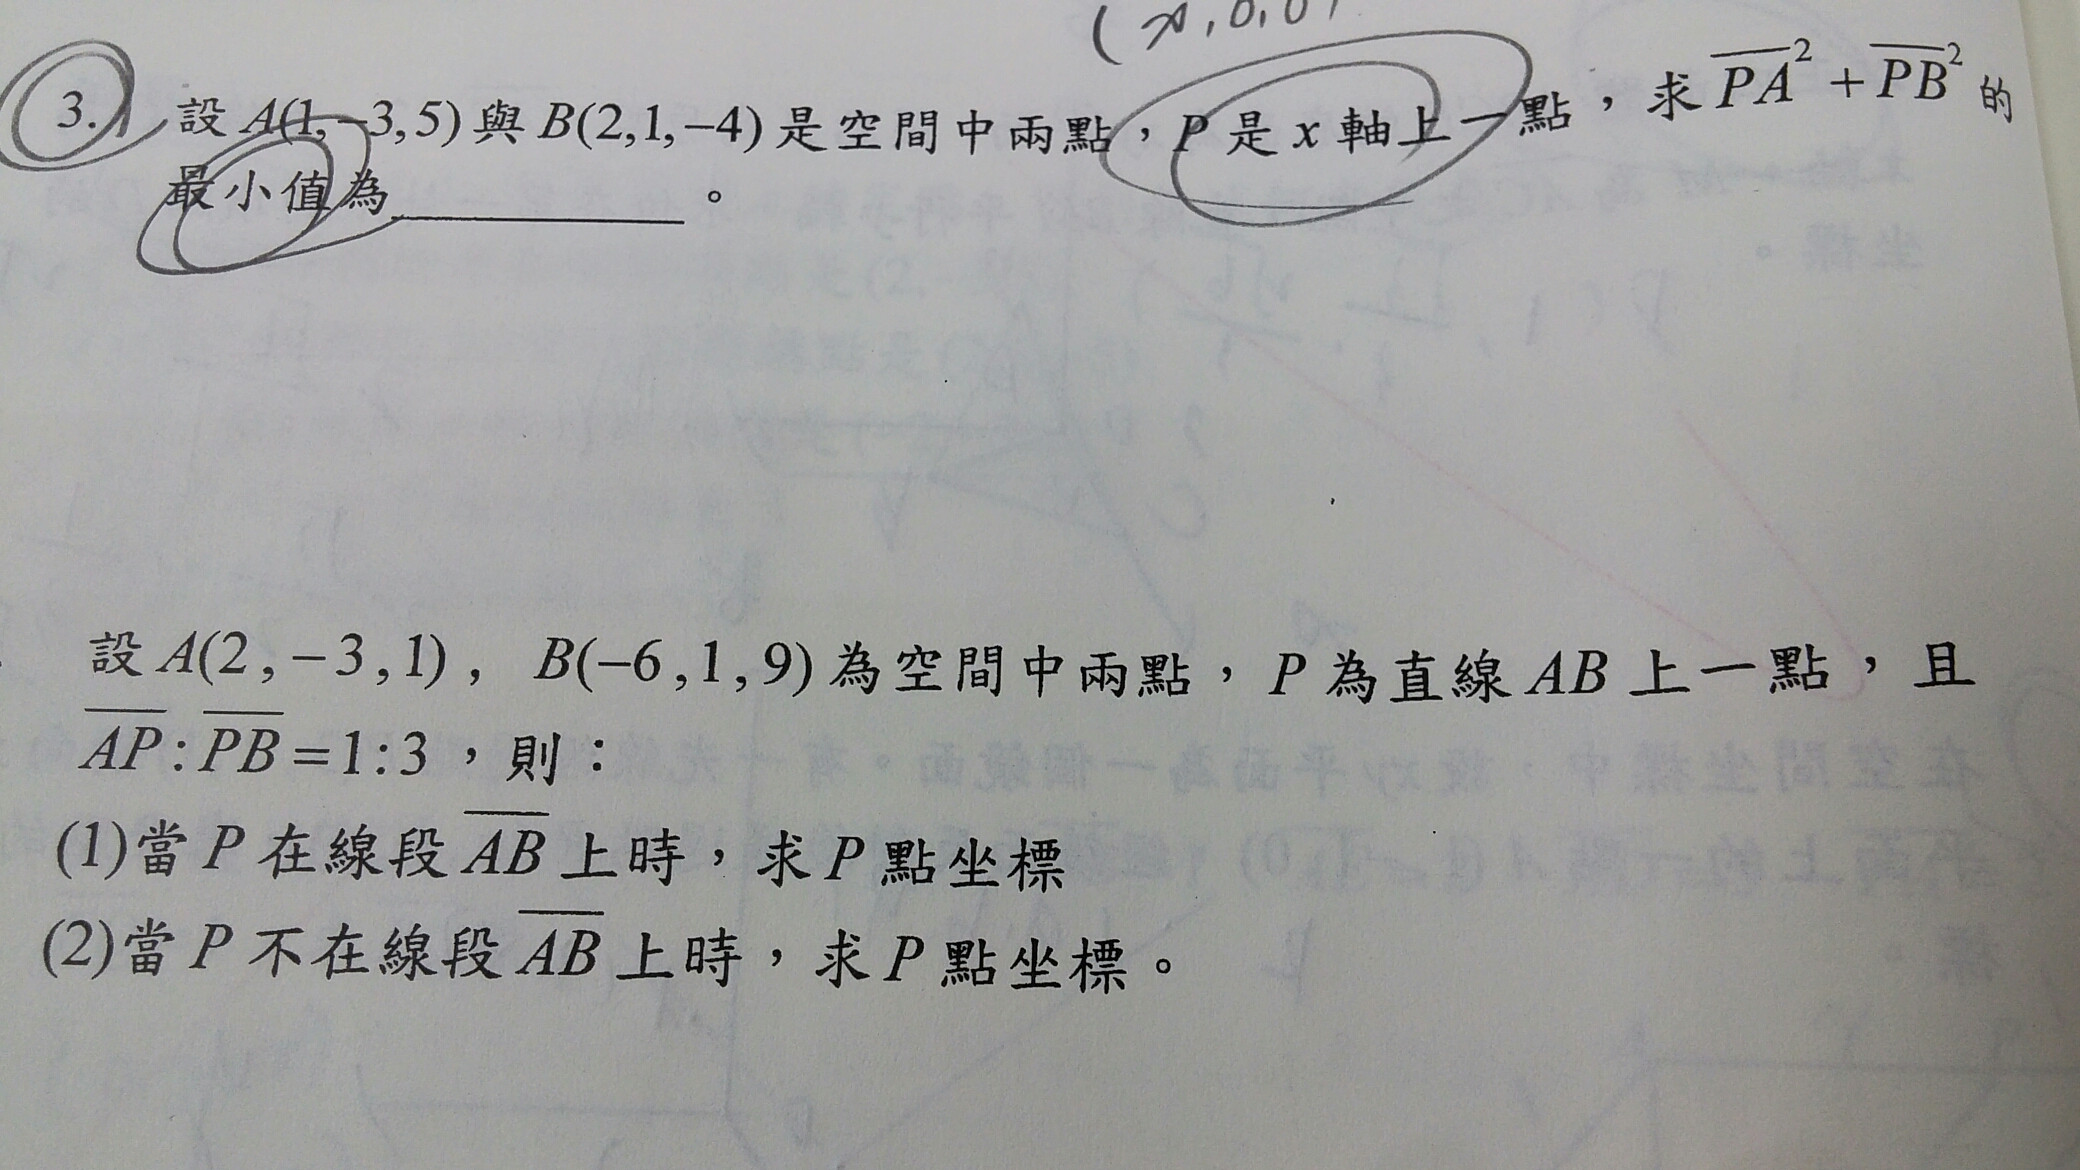 (x,0,0)
3. 設A(1,−3,5)與B(2,1,−4)是空間中兩點，P是x軸上一點，求PA²+PB²的
最小值為________。
設A(2,−3,1)，B(−6,1,9)為空間中兩點，P為直線AB上一點，且
AP:PB=1:3，則：
(1)當P在線段AB上時，求P點坐標
(2)當P不在線段AB上時，求P點坐標。